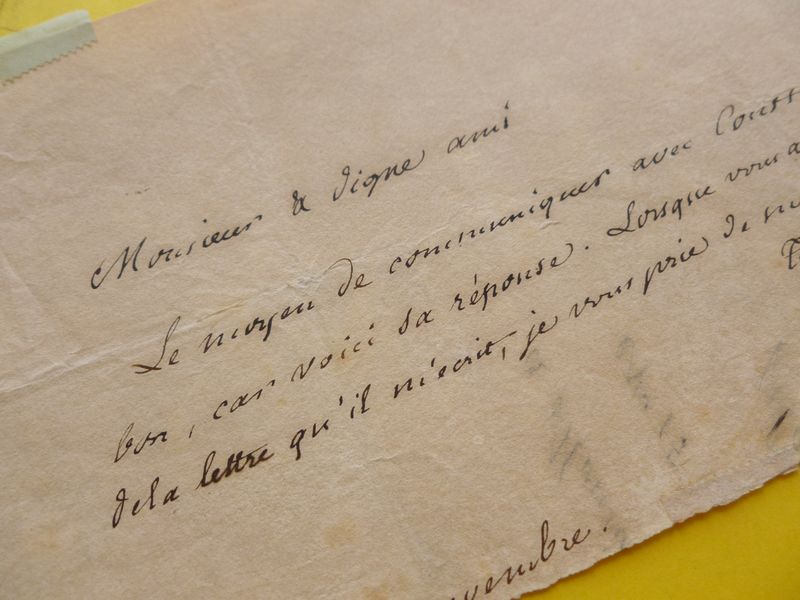 Monsieur & digne ami
Le moyen de communiquer avec Const
bon, car voici sa réponse. Lorsque vous a
de la lettre qu'il m'écrit, je vous prie de m
vembre.